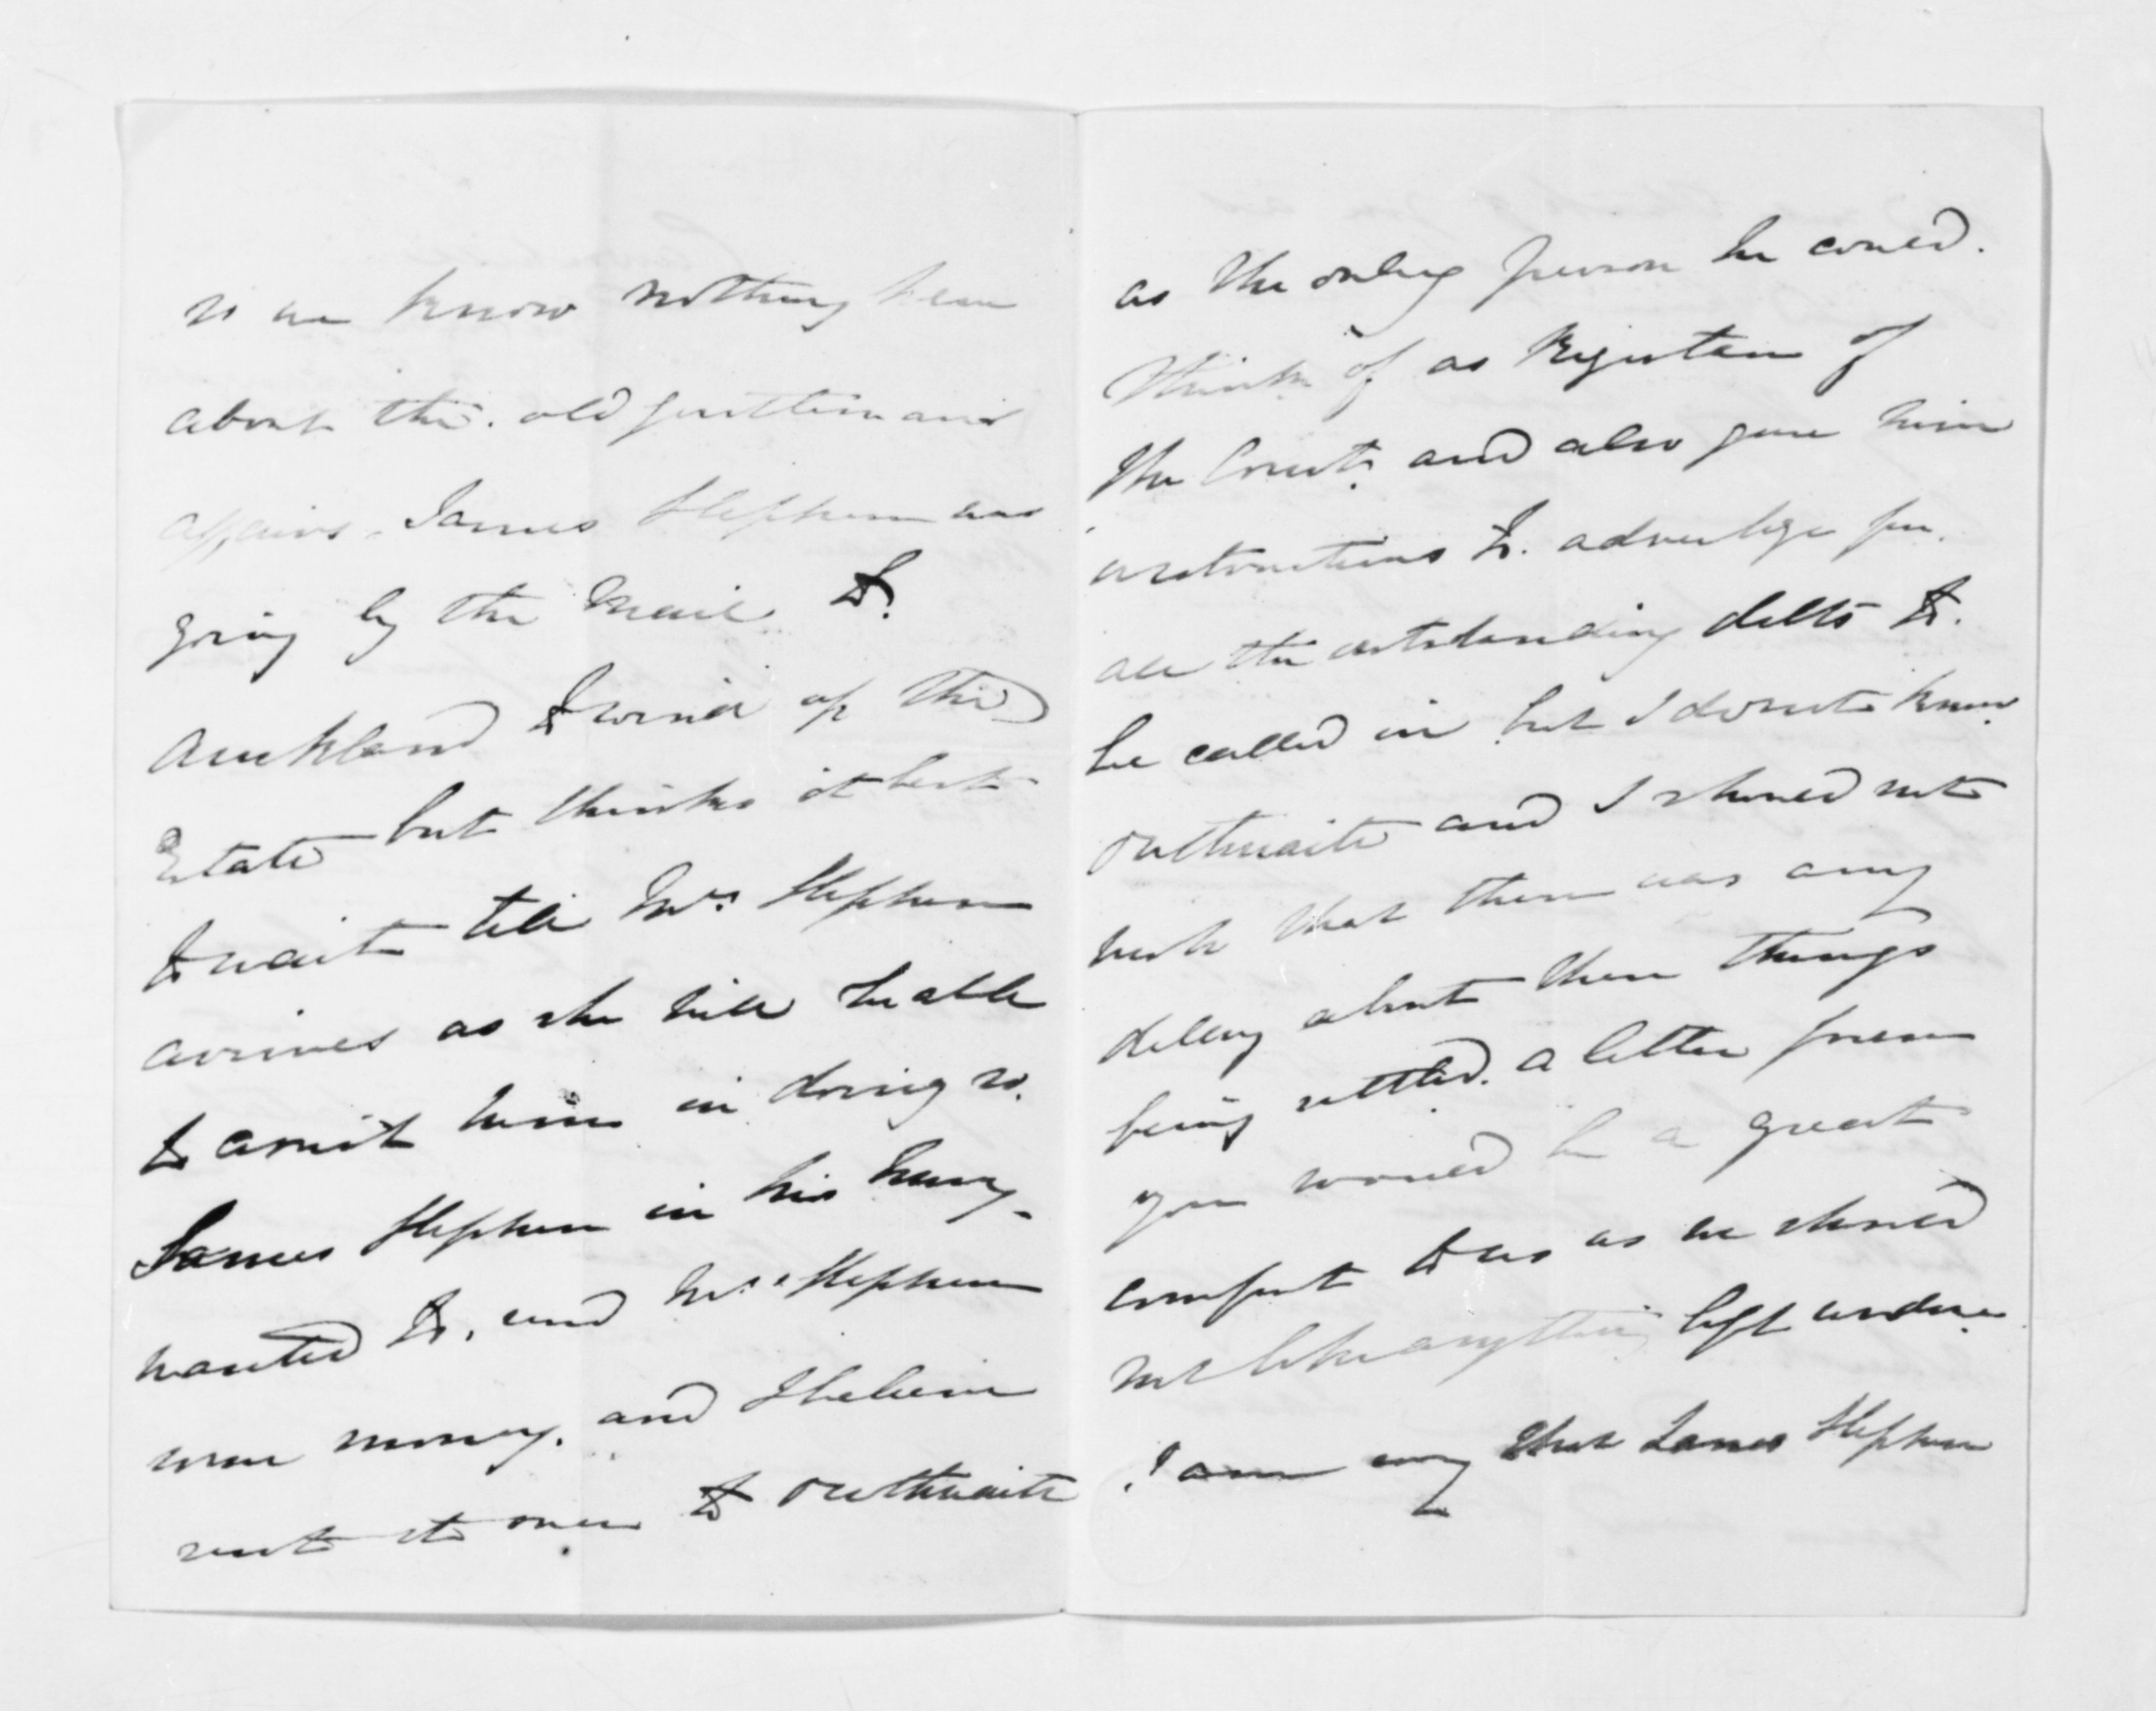 so we know nothing here
about the old gentleman's
affairs. James Stephen was
going by the Mail to
Auckland to wind up the
Estate but thinks it best
to wait till Mrs. Stephen
arrives as she will be able
to assist him in doing so.
James Stephen in his hurry
wanted to send Mrs. Stephen
some money. and I believe
sent it over to Outhwaite
as the only person he could.
think of as Registrar of
the Court. and also gave him
instructions to. advertize for.
all the outstanding debts to.
be called in but I do not know
Outhwaite and I should not
wish that there was any
delay about these things
being settled. a letter from
you would be a great
comfort to us as we should
not like anything left undone.
I am sorry that James Stephen